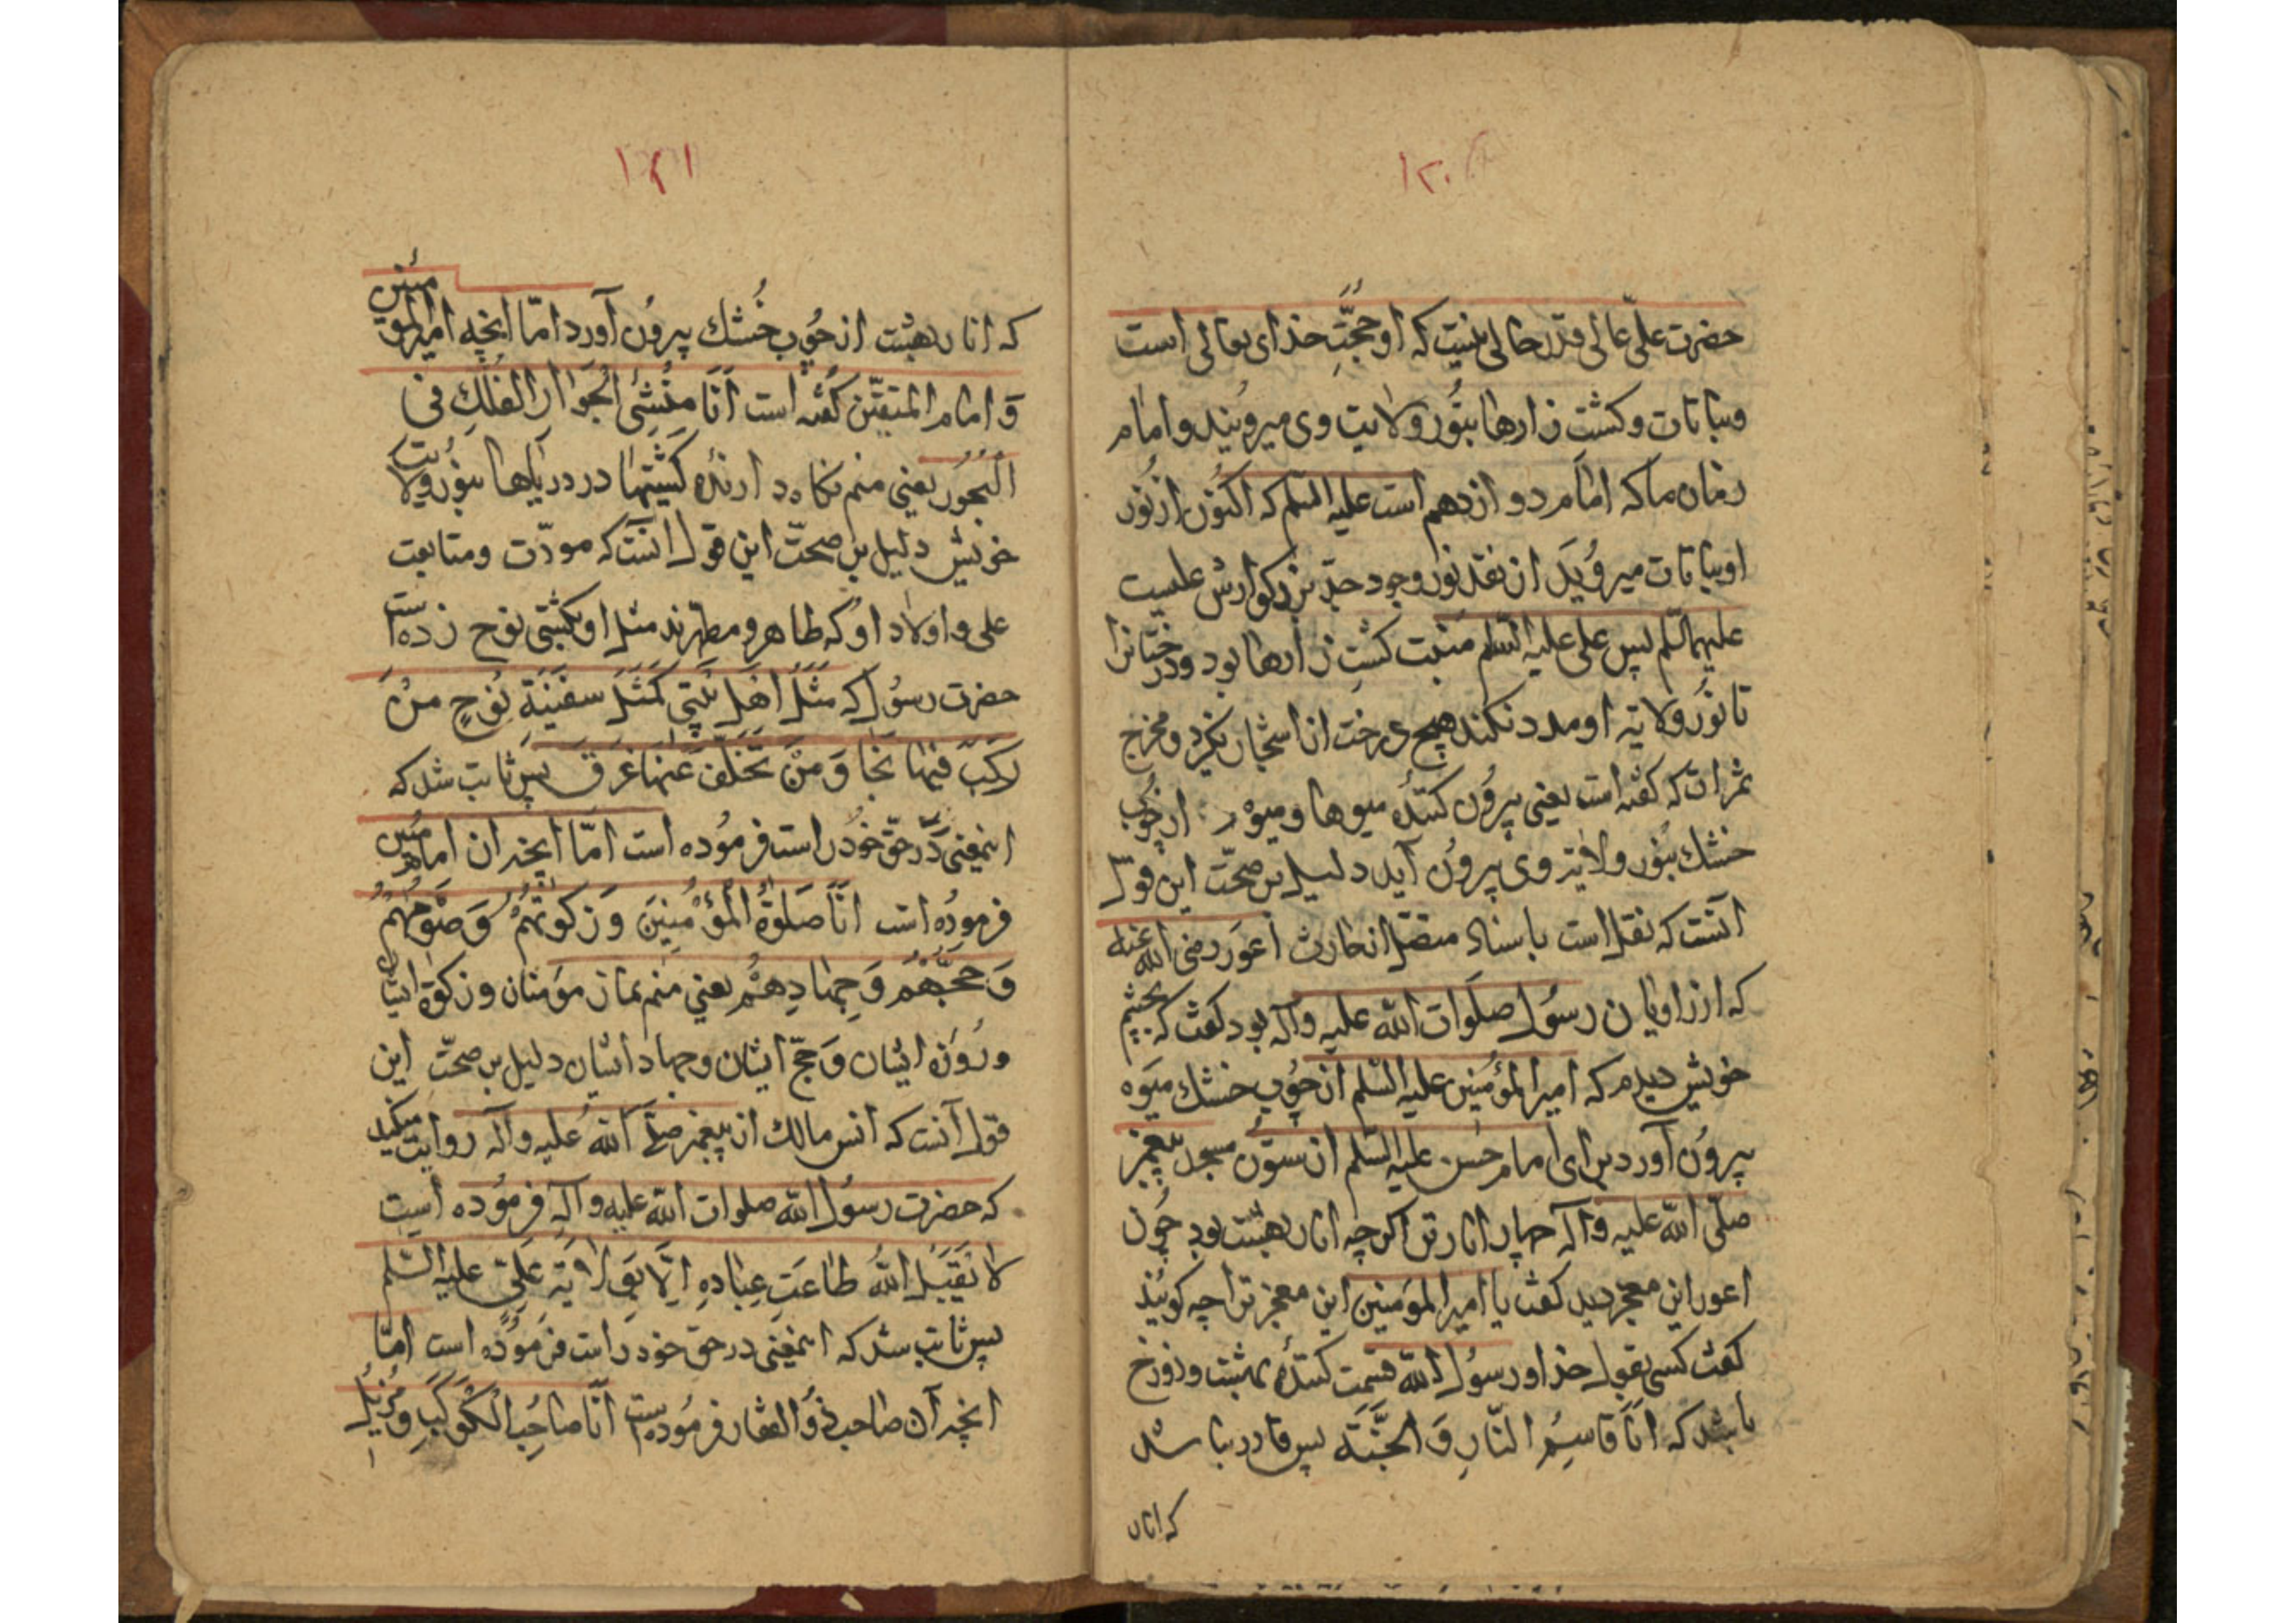 ۱۲۰
حضرت علی عالی قدر حالی نیست که او حجّتِ خدای تعالی است
ونباتات وکشت زارها بنُور ولایت وی میروُیند وامام
زمان ماکه امام دوازدهم است علیه السّلم که اکنوُن از نُور
اونباتات میروُید از نقد نور وجود جدّ بزرکوارش علیست
علیهما السّلم پس علی علیه السّلم منبت کشتِ زارها بود ودرختانرا
تا نوُر ولایته او مدد نکند هیچ درخت از اشجار نکیرد ومخرج
ثمرات که کفته است یعنی بیروُن کنندهٔ میوها ومیوه از چُوب
خشك بنُور ولایته وی بیروُن آید دلیل بر صحّت این قول
آنست که نقل است باسناد متصّل از حارث اعور رضی الله عنه
که از راویان رسوُل صلَوات الله علیه وآله بود کفت که بچشم
خویش دیدم که امیر المؤمنین علیه السّلم از چوُب خشك میَوه
بیروُن آورد برای امام حسن علیه السّلم از ستوُن مسجد پیغمبر
صلّی الله علیه وآله چهار انار تر اکرچه انار بهشت بود چوُن
اعور این معجز دید کفت یا امیر المؤمنین این معجز ترا چه کویند
کفت کسی بقول خدا ورسوُل الله قسمت کنندهٔ بهشت ودوزخ
باشد که اَنَا قاسِمُ النّارِ وَ الجَنَّة پس قادر باشد
که انار
۱۲۱
که انار بهشت از چوُب خُشك بیروُن آورد امّا انچه امیر المؤمنین
وَ امام المتقیّن کفته است اَنَا مُنْشِئُ الْجَوارِ الفُلْكِ فی
الْبُحُور یعنی منم نکاه دارندهٔ کشتیها در دریاها بنوُر ولایت
خویش دلیل بر صحتّ این قول انست که مودّت ومتابعت
علی واولاد او که طاهر ومطهّرند مثل او بکشتی نوح زده است
حضرت رسوُل که مَثَلُ اَهْلِ بَیْتی کَمَثَلِ سفینَةِ نوُحٍ مَنْ
رَکِبَ فیها نَجا وَ مَنْ تَخَلّفَ عَنها غَرَقَ پس ثابت شد که
اینمعنی دَر حَقّ خوُد راست فرموُده است امّا انچه ان امام مُبین
فرموُده است اَنَا صَلوةُ الْمُؤْمِنینَ وَ زَکوتُهُمْ وَ صَوْمُهُمْ
وَ حَجُّهُمْ وَ جِهادِهُمْ یعنی منم نماز مؤمنان وزکوة ایشان
وروُزهٔ ایشان وَ حَجّ ایشان وجهاد ایشان دلیل بر صحّت این
قول آنست که انس مالك از پیغمبر صلّی الله علیه وآله روایت میکند
که حضرت رسوُل الله صلوات الله علیه وآله فرموُده است
لا یَقبَلُ اللهُ طاعَتِ عِبادِهِ اِلّا بوَلایَةِ عَلیّ علیه السّلم
پس ثابت شد که اینمعنی در حقّ خود راست فرموُده است امّا
انچه آن صاحب ذوُ الفقار فرموُدست اَنَا صاحِبُ الکَوکَبِ وَ مُزیلُ